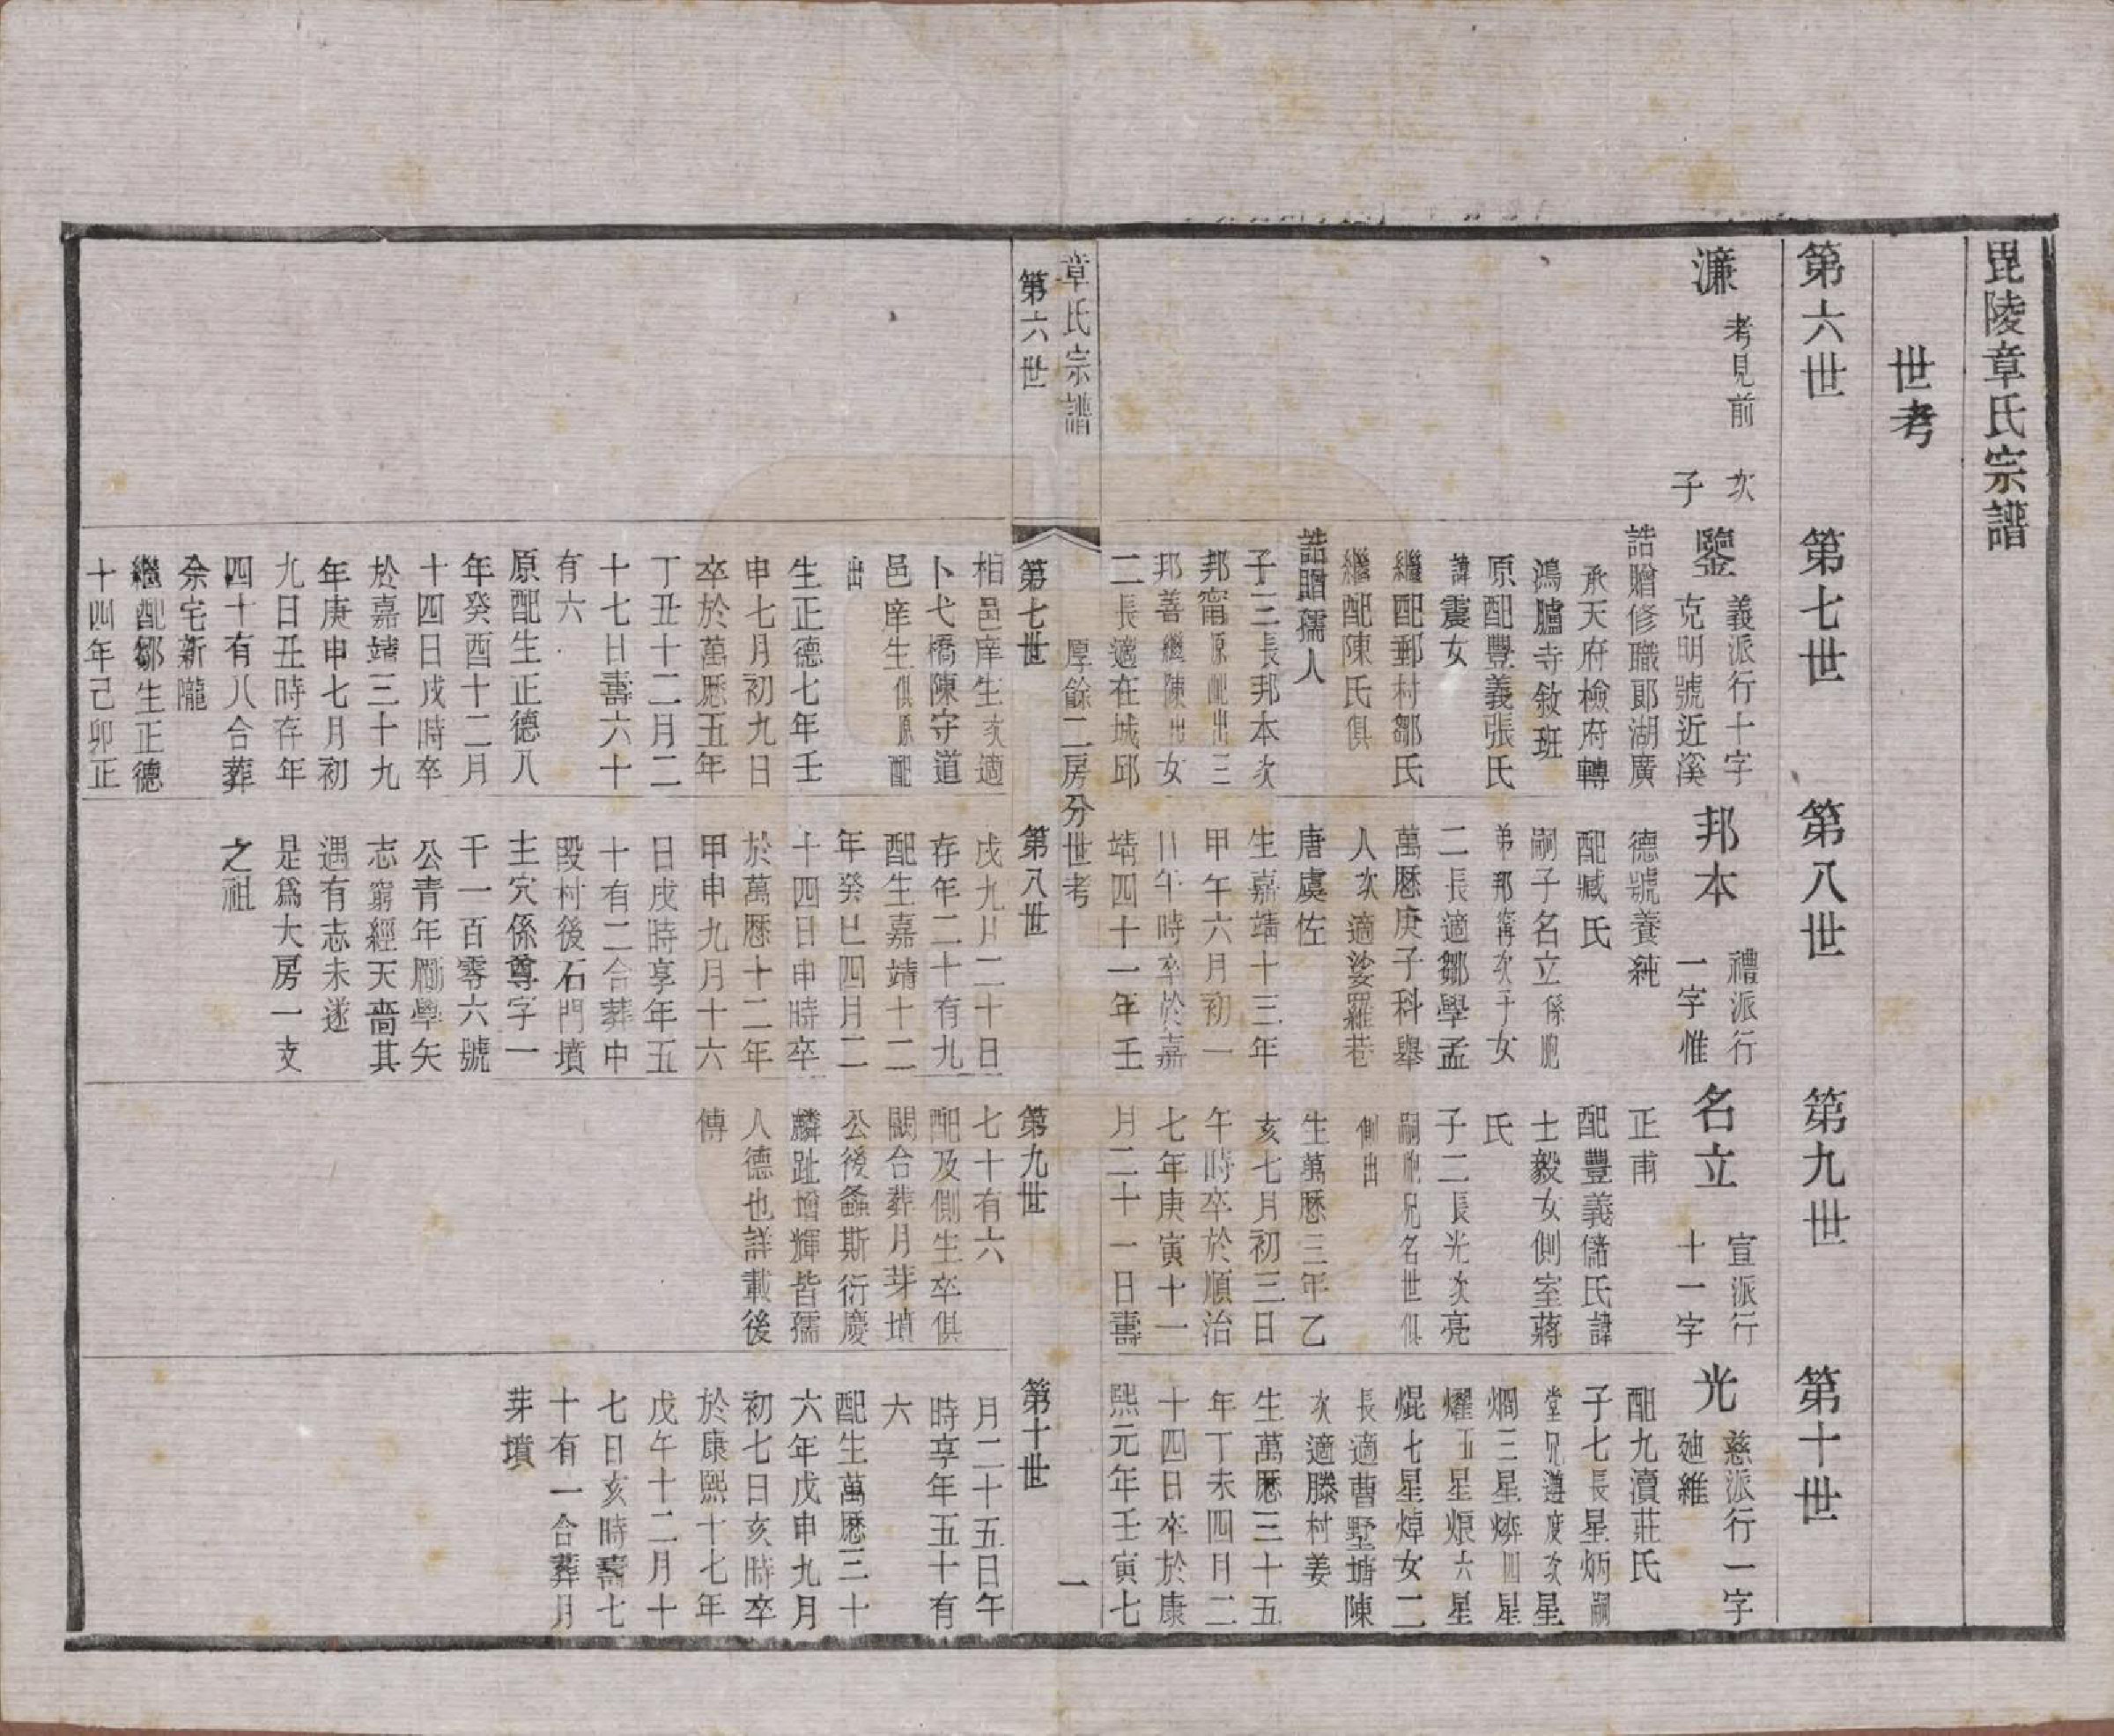 毘陵章氏宗譜
世考
第六世
第七世
第八世
第九世
第十世
濂
考見前
次
子
鑒
義派行十字
克明號近溪
誥贈修職郞湖廣
承天府檢府轉
鴻臚寺敘班
原配豐義張氏
諱震女
繼配鄴村鄒氏
繼配陳氏俱
誥贈孺人
子三長邦本次
邦甯原配出三
邦善繼陳出女
二長適在城邱
相邑庠生次適
卜弋橋陳守道
邑庠生俱原配
出
生正德七年壬
申七月初九日
卒於萬厯五年
丁丑十二月二
十七日壽六十
有六
原配生正德八
年癸酉十二月
十四日戌時卒
於嘉靖三十九
年庚申七月初
九日丑時存年
四十有八合葬
余宅新隴
繼配鄒生正德
十四年己卯正
邦本
禮派行
一字惟
德號養純
配臧氏
嗣子名立係胞
弟邦甯次子女
二長適鄒學孟
萬厯庚子科舉
人次適娑羅巷
唐虞佐
生嘉靖十三年
甲午六月初一
日午時卒於嘉
靖四十一年壬
戌九月二十日
存年二十有九
配生嘉靖十二
年癸巳四月二
十四日申時卒
於萬厯十二年
甲申九月十六
日戌時享年五
十有二合葬中
段村後石門墳
主穴係尊字一
千一百零六號
公青年勵學矢
志窮經天嗇其
遇有志未遂
是爲大房一支
之祖
名立
宣派行
十一字
正甫
配豐義儲氏諱
士毅女側室蔣
氏
子二長光次亮
嗣胞兄名世俱
側出
生萬厯三年乙
亥七月初三日
午時卒於順治
七年庚寅十一
月二十一日壽
七十有六
配及側生卒俱
闕合葬月芽墳
公後螽斯衍慶
麟趾增輝皆孺
人德也詳載後
傳
光
慈派行一字
廸維
配九瀆莊氏
子七長星炳嗣
堂兄遵度次星
燗三星烨四星
燿五星烺六星
焜七星焯女二
長適曹墅塘陳
次適滕村姜
生萬厯三十五
年丁未四月二
十四日卒於康
熙元年壬寅七
月二十五日午
時享年五十有
六
配生萬厯三十
六年戊申九月
初七日亥時卒
於康熙十七年
戊午十二月十
七日亥時壽七
十有一合葬月
芽墳
章氏宗譜
厚餘二房分世考
一
第六世
第七世
第八世
第九世
第十世